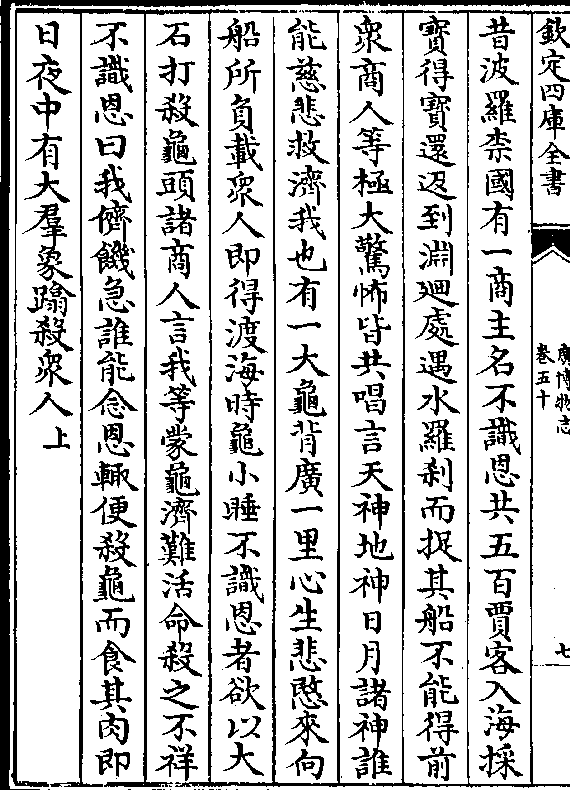 欽定四庫全書
廣博物志
卷五十
七
昔波羅柰國有一商主名不識恩共五百賈客入海採
寳得寳還返到淵廻處遇水羅刹而捉其船不能得前
衆商人等極大驚怖皆共唱言天神地神日月諸神誰
能慈悲救濟我也有一大龜背廣一里心生悲愍來向
船所負載衆人即得渡海時龜小睡不識恩者欲以大
石打殺龜頭諸商人言我等蒙龜濟難活命殺之不祥
不識恩曰我儕饑急誰能念恩輙便殺龜而食其肉即
日夜中有大羣象蹋殺衆人上